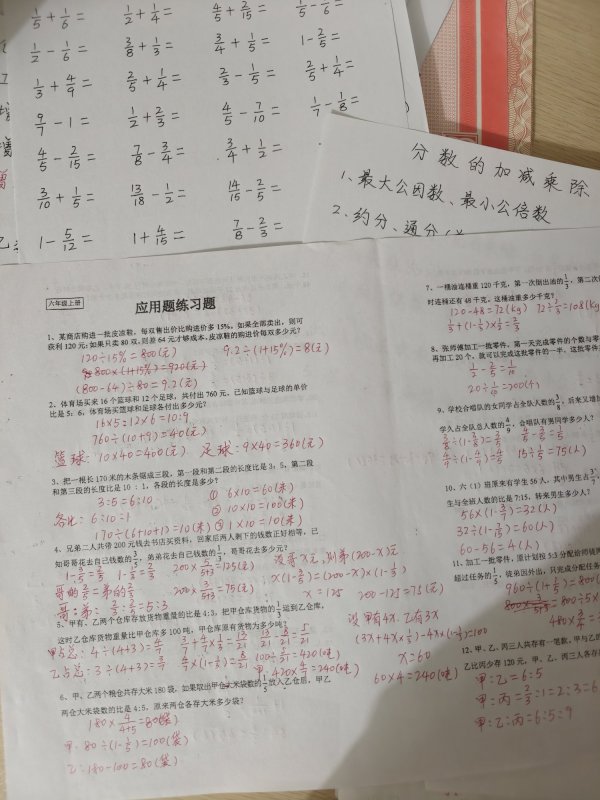 1/5 + 1/6 = 1/2 + 1/4 = 4/5 + 2/15 = 1/5 - 1/6 =
1/2 - 1/6 = 3/8 + 1/3 = 3/4 + 1/5 = 1 - 2/5 =
1/3 + 4/9 = 2/5 + 1/4 = 2/3 - 1/5 = 2/5 + 1/4 =
9/7 - 1 = 1/2 + 2/3 = 4/5 - 7/10 = 1/7 - 1/8 =
4/5 - 2/15 = 7/8 - 3/4 = 3/4 + 1/2 =
3/10 + 1/5 = 13/18 - 1/2 = 14/15 - 2/5 =
1 - 5/12 = 1 + 4/15 = 7/8 - 2/3 =
分数的加减乘除
1、最大公因数、最小公倍数
2、约分、通分
六年级上册
应用题练习题
1、某商店购进一批皮凉鞋，每双售出价比购进价多15%。如果全部卖出，则可
获利120元；如果只卖80双，则差64元才够成本。皮凉鞋的购进价每双多少元？
120÷15%=800(元) 9.2÷(1+15%)=8(元)
800×(1+15%)=920(元)
(800-64)÷80=9.2(元)
2、体育场买来16个篮球和12个足球，共付出760元，已知篮球与足球的单价
比是5：6，体育场买篮球和足球各付出多少元？
16×5:12×6=10:9
760÷(10+9)=40(元)
篮球：10×40=400(元) 足球：9×40=360(元)
3、把一根长170米的木条锯成三段，第一段和第二段的长度比是3：5，第二段
和第三段的长度比是10：1，各段的长度是多少？
3:5=6:10 ① 6×10=60(米)
各比：6:10:1 ② 10×10=100(米)
170÷(6+10+1)=10(米) ③ 1×10=10(米)
4、兄弟二人共带200元钱去书店买资料，回家后两人剩下的钱数正好相等，已
知哥哥花去自己钱数的3/5，弟弟花去自己钱数的1/3，哥哥花去多少元？
1-3/5=2/5 1-1/3=2/3 200×5/5+3=125(元) 设哥x元，则弟(200-x)元
哥的2/5=弟的2/3 200×3/5+3=75(元) x(1-3/5)=(200-x)×(1-1/3)
哥：弟=2/3:2/5=5:3 x=125 200-125=75(元)
5、甲、乙两个仓库存放货物重量的比是4:3，把甲仓库货物的1/3运到乙仓库，
这时乙仓库货物重量比甲仓库多100吨，甲仓库原有货物为多少吨？
甲占总：4÷(4+3)=4/7 3/7+4/7×1/3=13/21 13/21-8/21=5/21 设甲有4x 乙有3x
乙占总：3÷(4+3)=3/7 4/7×(1-1/3)=8/21 100÷5/21=420(吨) (3x+4x×1/3)-4x×(1-1/3)=100
甲：420×4/7=240(吨) x=60
60×4=240(吨)
6、甲、乙两个粮仓共存大米180袋，如果取出甲仓大米袋数的1/5放入乙仓后，甲乙
两仓大米袋数的比是4:5，原来两仓各存大米多少袋？
180×4/4+5=80(袋)
甲：80÷(1-1/5)=100(袋)
乙：180-100=80(袋)
7、一桶油连桶重120千克，第一次倒出油的1/3，第二次
时连桶还有48千克，这桶油重多少千克？
120-48=72(kg) 72÷2/3=108(kg)
1/3+(1-1/3)×1/2=2/3
8、张师傅加工一批零件，第一天完成零件的个数与零
再加工20个，就可以完成这批零件的一半，这批零件
1/2-2/5=1/10
20÷1/10=200(个)
9、学校合唱队的女同学占全队人数的3/8，后来又增加
学占全队总人数的4/9，合唱队有男同学多少人？
3/8÷(1-3/8)=3/5 4/5-3/5=1/5
4/9÷(1-4/9)=4/5 15÷1/5=75(人)
10、六（1）班原来有学生56人，其中男生占3/7，
生与全班人数的比是7:15，转来男生多少人？
56×(1-3/7)=32(人)
32÷(1-7/15)=60(人)
60-56=4(人)
11、加工一批零件，原计划按5:3分配给师徒两
超过任务的1/5，徒弟因外出，只完成分配任务
960÷(1+1/5)=800(
=800÷5×
480×3/5=
12、甲、乙、丙三人共存有一笔款，甲与乙的
乙比因少存120元，甲、乙、丙三人各存
甲：乙=6:5
甲：丙=2/3:1=2:3=6
甲：乙：丙=6:5:9